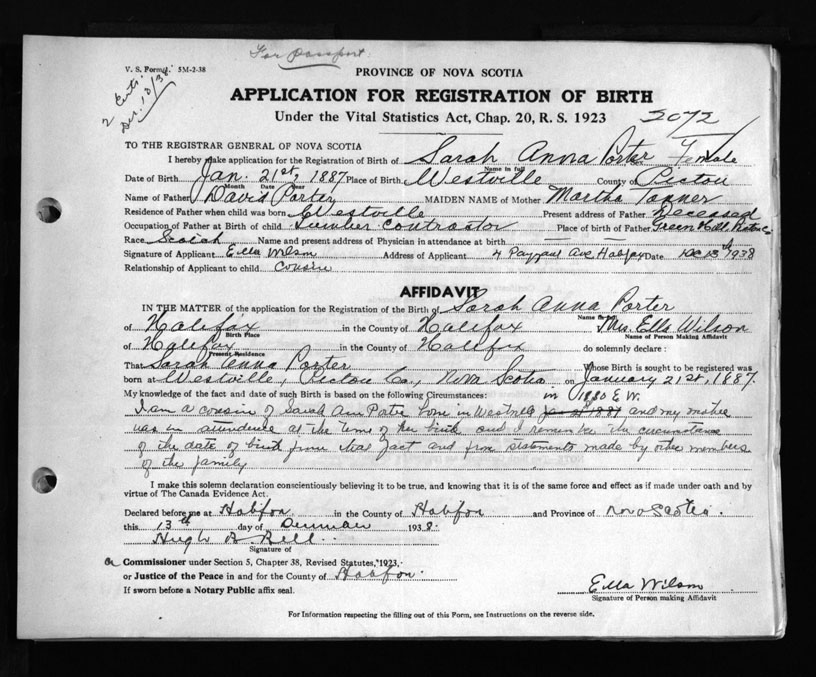 For passport.
V. S. Form 5M-2-38
2 Certs. Dec. 13/38
PROVINCE OF NOVA SCOTIA
APPLICATION FOR REGISTRATION OF BIRTH
Under the Vital Statistics Act, Chap. 20, R. S. 1923
2072
TO THE REGISTRAR GENERAL OF NOVA SCOTIA
I hereby make application for the Registration of Birth of Sarah Anna Porter Female
Name in full
Date of Birth Jan. 21st, 1887 Place of Birth Westville County of Pictou
Month Date Year
Name of Father David Porter MAIDEN NAME of Mother Martha Tanner
Residence of Father when child was born Westville Present address of Father Deceased
Occupation of Father at Birth of child Lumber Contractor Place of birth of Father Green Hill, Pictou Co
Race Scotch Name and present address of Physician in attendance at birth
Signature of Applicant Ella Wilson Address of Applicant 4 Ave Halifax Date Dec 13th 1938
Relationship of Applicant to child Cousin
AFFIDAVIT
IN THE MATTER of the application for the Registration of the Birth of Sarah Anna Porter
Name in full
of Halifax in the County of Halifax Mrs. Ella Wilson
Birth Place
Name of Person making Affidavit
of Halifax in the County of Halifax do solemnly declare :
Present Residence
That Sarah Anna Porter Whose Birth is sought to be registered was
born at Westville, Pictou Co., Nova Scotia on January 21st, 1887.
My knowledge of the fact and date of such Birth is based on the following Circumstances: in 1880 E.W.
I am a cousin of Sarah Ann Porter born in Westville Jan 21 1887 and my mother
was in attendance at the time of her birth and I remember the circumstance
of the date of birth from that fact and from statements made by other members
of the family
I make this solemn declaration conscientiously believing it to be true, and knowing that it is of the same force and effect as if made under oath and by
virtue of The Canada Evidence Act.
Declared before me at Halifax in the County of Halifax and Province of Nova Scotia.
this 13th day of December 1938.
Hugh B. Bell
Signature of
A Commissioner under Section 5, Chapter 38, Revised Statutes, 1923.
or Justice of the Peace in and for the County of Halifax.
If sworn before a Notary Public affix seal.
Ella Wilson
Signature of Person making Affidavit
For Information respecting the filling out of this Form, see Instructions on the reverse side.